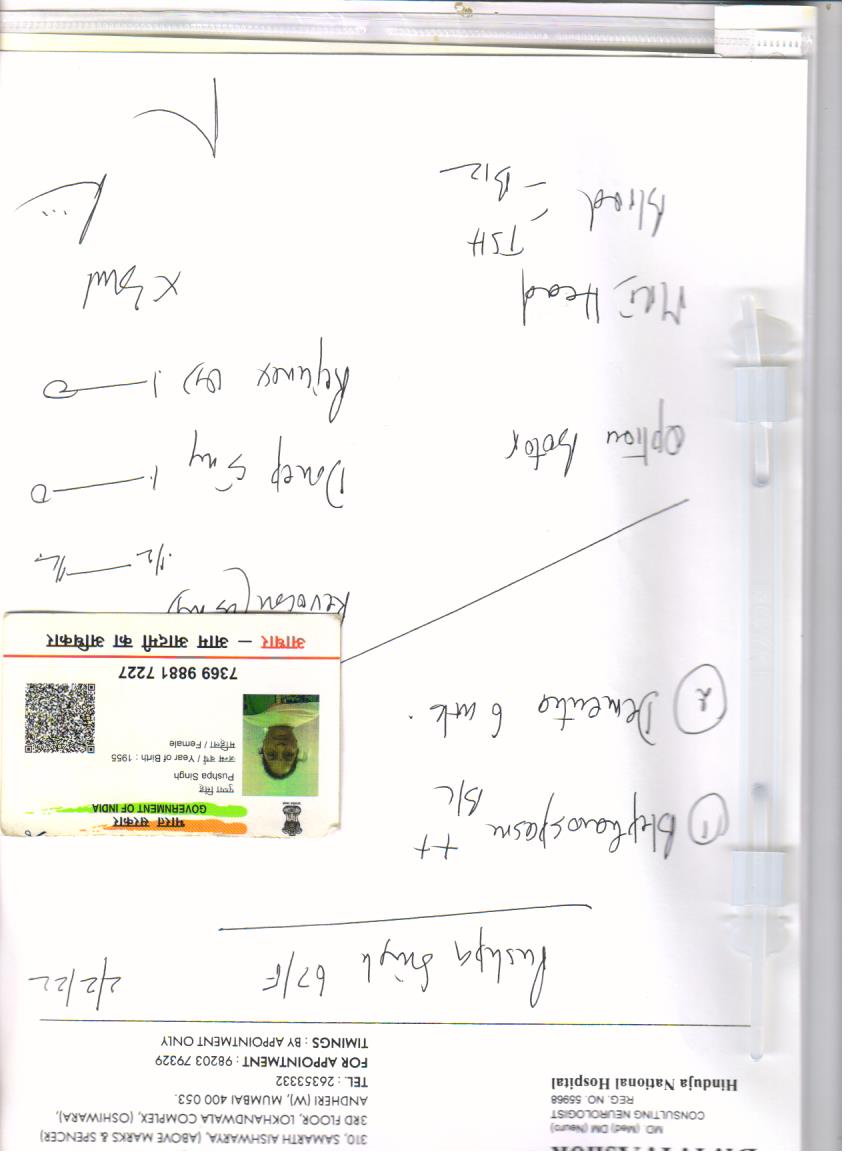 MD (Med) DM (Neuro)
CONSULTING NEUROLOGIST
REG. NO. 55968
Hinduja National Hospital
310, SAMARTH AISHWARYA, (ABOVE MARKS & SPENCER)
3RD FLOOR, LOKHANDWALA COMPLEX, (OSHIWARA),
ANDHERI (W), MUMBAI 400 053.
TEL. : 26353332
FOR APPOINTMENT : 98203 79329
TIMINGS : BY APPOINTMENT ONLY
Pushpa Singh 67/F 2/2/22
① Blepharospasm ++
B/L
② Dementia 6 mth.
भारत सरकार
GOVERNMENT OF INDIA
पुष्पा सिंह
Pushpa Singh
जन्म वर्ष / Year of Birth : 1955
महिला / Female
7369 9881 7227
आधार — आम आदमी का अधिकार
Option Botox
MRI Head
Blood TSH
- B12
1/2 — 1/2
Donep 5 mg 1 — 0
Rejunex 1 — 0